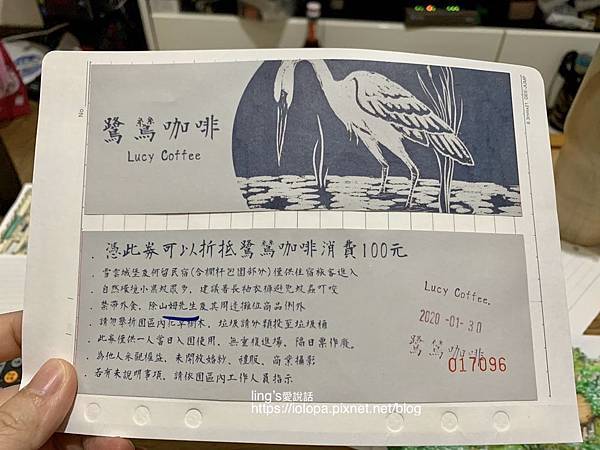 No
鷺鷥咖啡
Lucy Coffee
．憑此券可以折抵鷺鷥咖啡消費100元
．雪雲城堡及何留民宿(含欄杆芭圍部外)僅供住宿旅客進入
．自然環境小黑蚊眾多，建議著長袖衣褲避免蚊蟲叮咬
．禁帶外食，除山姆先生及其周邊攤位商品例外
．請勿攀折園區內花草樹木，垃圾請分類投至垃圾桶
．此券僅供一人當日入園使用，無重複進場、隔日票作廢。
．為他人永觀權益，未開放婚紗、禮服、商業攝影
．若有未說明事項，請依園區內工作人員指示
Lucy Coffee.
2020-01-30
鷺鷥咖啡
017096
ling's愛說話
https://iolopa.pixnet.net/blog